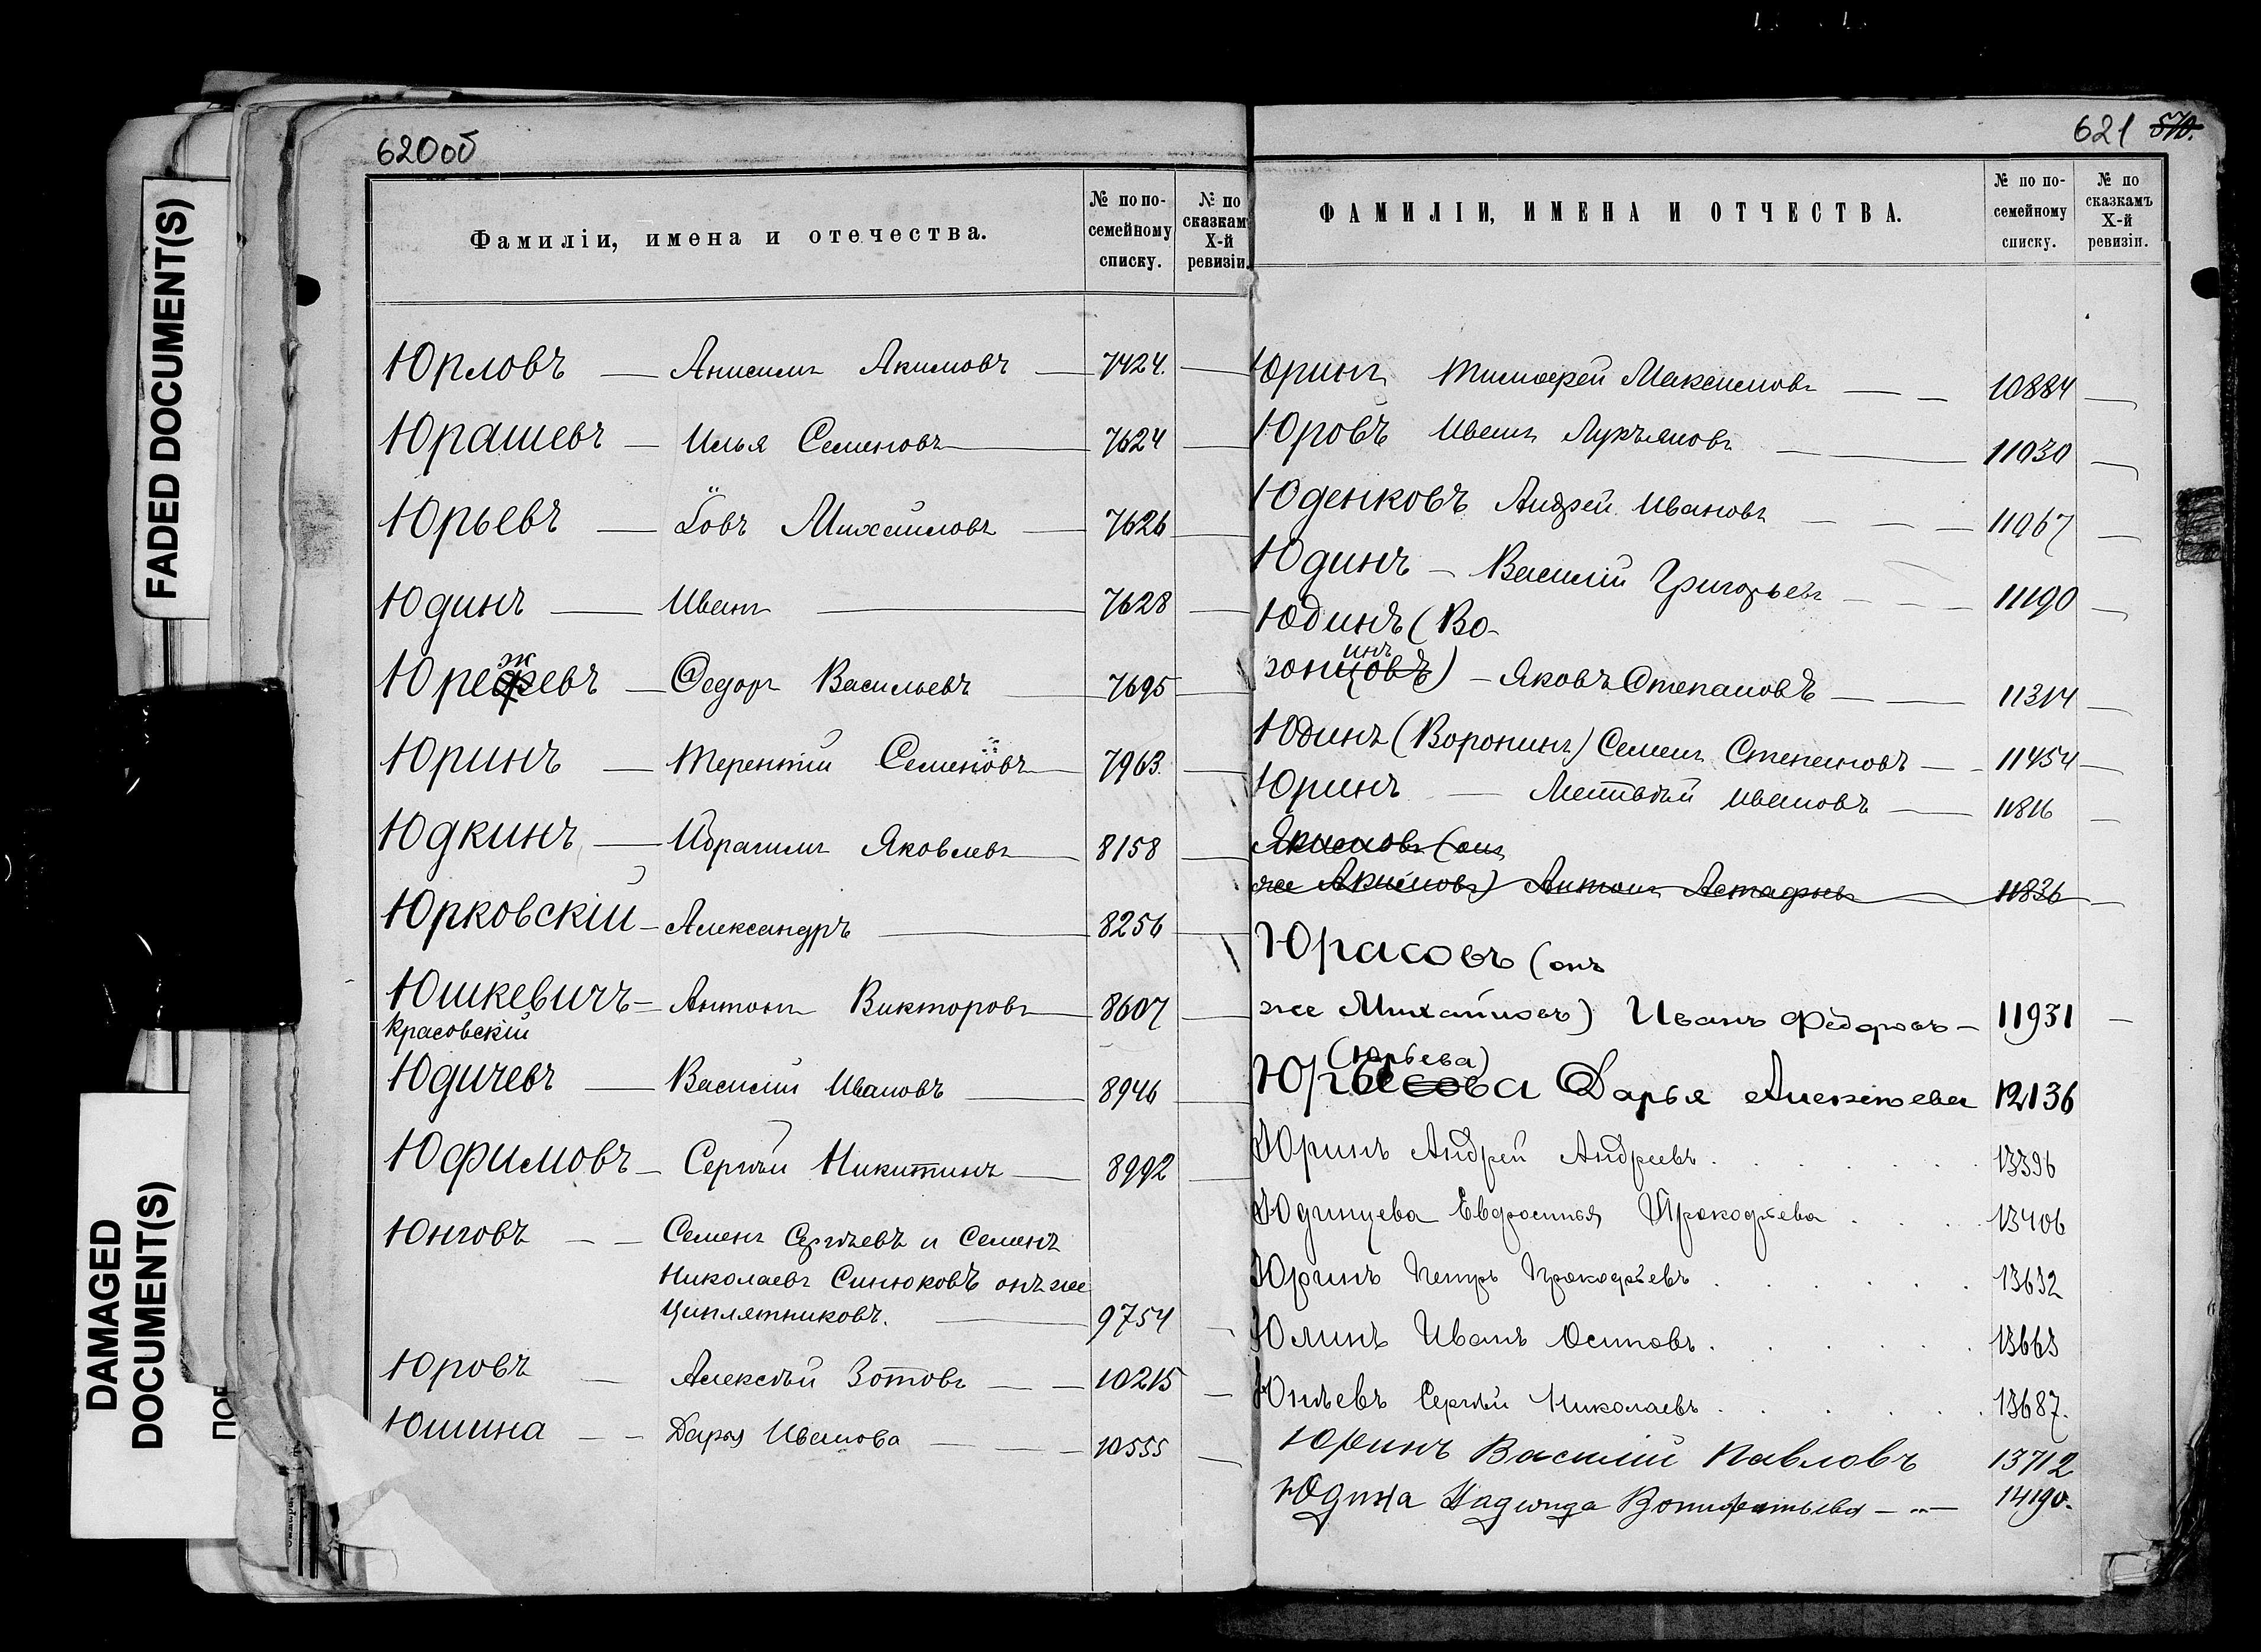 FADED DOCUMENT(S)
DAMAGED
DOCUMENT(S)
620об
Фамиліи, имена и отечества.
№ по по-
семейному
списку.
№ по
сказкам
X-й
ревизіи.
Юрловъ — Анисимъ Акимовъ — 7424.
Юрашевъ — Илья Семеновъ — 7624
Юрьевъ — Іовъ Михаиловъ — 7626
Юдинъ — Иванъ — 7628
ж
Юрефевъ — Ѳедоръ Васильевъ 7695
Юринъ — Терентій Семеновъ — 7963.
Юдкинъ — Ибрагимъ Яковлевъ — 8158
Юрковскій — Александръ — 8256
Юшкевичъ — Антонъ Викторовъ — 8607
Красовскій
Юдичевъ — Василій Ивановъ — 8946
Юфимовъ — Сергѣй Никитинъ — 8992
Юнговъ — — Семенъ Сергѣевъ и Семенъ
Николаевъ Синюковъ онъ же
Циплятниковъ. — 9754
Юровъ — Алексѣй Зотовъ — — 10215
Юшина — — Дарья Иванова — — — 10555
621 570.
ФАМИЛІИ, ИМЕНА И ОТЧЕСТВА.
№ по по-
семейному
списку.
№ по
сказкамъ
X-й
ревизіи.
Юринъ Тимоѳей Максимовъ — — 10884
Юровъ Иванъ Лукьяновъ — — 11030
Юденковъ Андрей Ивановъ — — — 11067
Юдинъ — Василій Григорьевъ — — — 11190
Юдинъ (Во-
инъ
ронцовъ) — Яковъ Степановъ — — 11314
Юдинъ (Воронинъ) Семенъ Степановъ — 11454
Юринъ — Матвѣй Ивановъ — 11816
Якисовъ (онъ
же Акимовъ) Антонъ Астафьевъ 11836
Юрасовъ (онъ
же Михайловъ) Иванъ Фёдоровъ — 11931
(Юрьева)
Юрасова Дарья Алексѣева 12136
Юринъ Андрей Андреевъ. 13396
Юдинцева Евдросинья Прокофьева 13406
Юринъ Петръ Прокофьевъ 13632
Юлинъ Иванъ Осиповъ. 13663
Юньевъ Сергѣй Николаевъ. 13687.
Юринъ Василій Павловъ 13712
Юдина Надежда Вонифатьева — 14190.